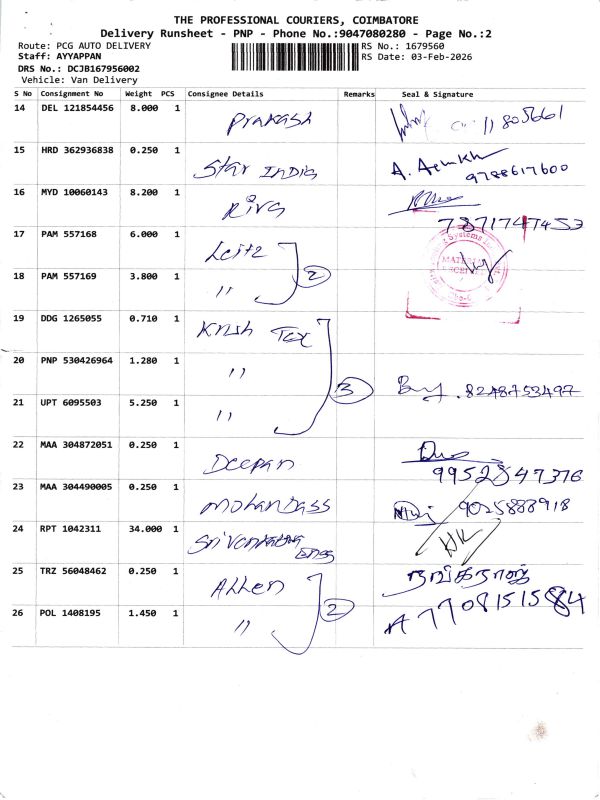 THE PROFESSIONAL COURIERS, COIMBATORE
Delivery Runsheet - PNP - Phone No.:9047080280 - Page No.:2
Route: PCG AUTO DELIVERY RS No.: 1679560
Staff: AYYAPPAN RS Date: 03-Feb-2026
DRS No.: DCJB167956002
Vehicle: Van Delivery
S No Consignment No Weight PCS Consignee Details Remarks Seal & Signature
14 DEL 121854456 8.000 1 Prakash 805661
15 HRD 362936838 0.250 1 Star India A. 9788617600
16 MYD 10060143 8.200 1 7871747453
17 PAM 557168 6.000 1 Leitz
18 PAM 557169 3.800 1 " 2
19 DDG 1265055 0.710 1 Krish Tex
20 PNP 530426964 1.280 1 " 3 8248753497
21 UPT 6095503 5.250 1 "
22 MAA 304872051 0.250 1 Deepan 9952847376
23 MAA 304490005 0.250 1 Mohandass 9025888918
24 RPT 1042311 34.000 1 Sri Engg
25 TRZ 56048462 0.250 1 Allen
26 POL 1408195 1.450 1 " 2 7708151584